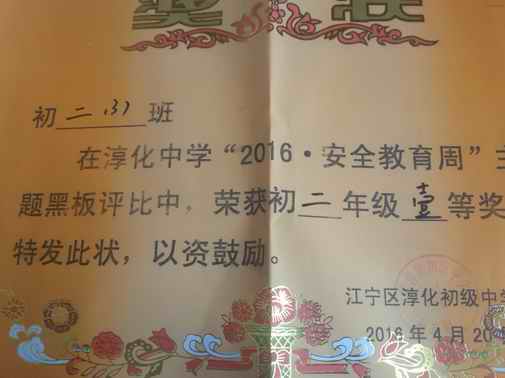 奖 状
初二（3）班
在淳化中学“2016·安全教育周”主
题黑板评比中，荣获初二年级壹等奖
特发此状，以资鼓励。
江宁区淳化初级中学
2016年4月20